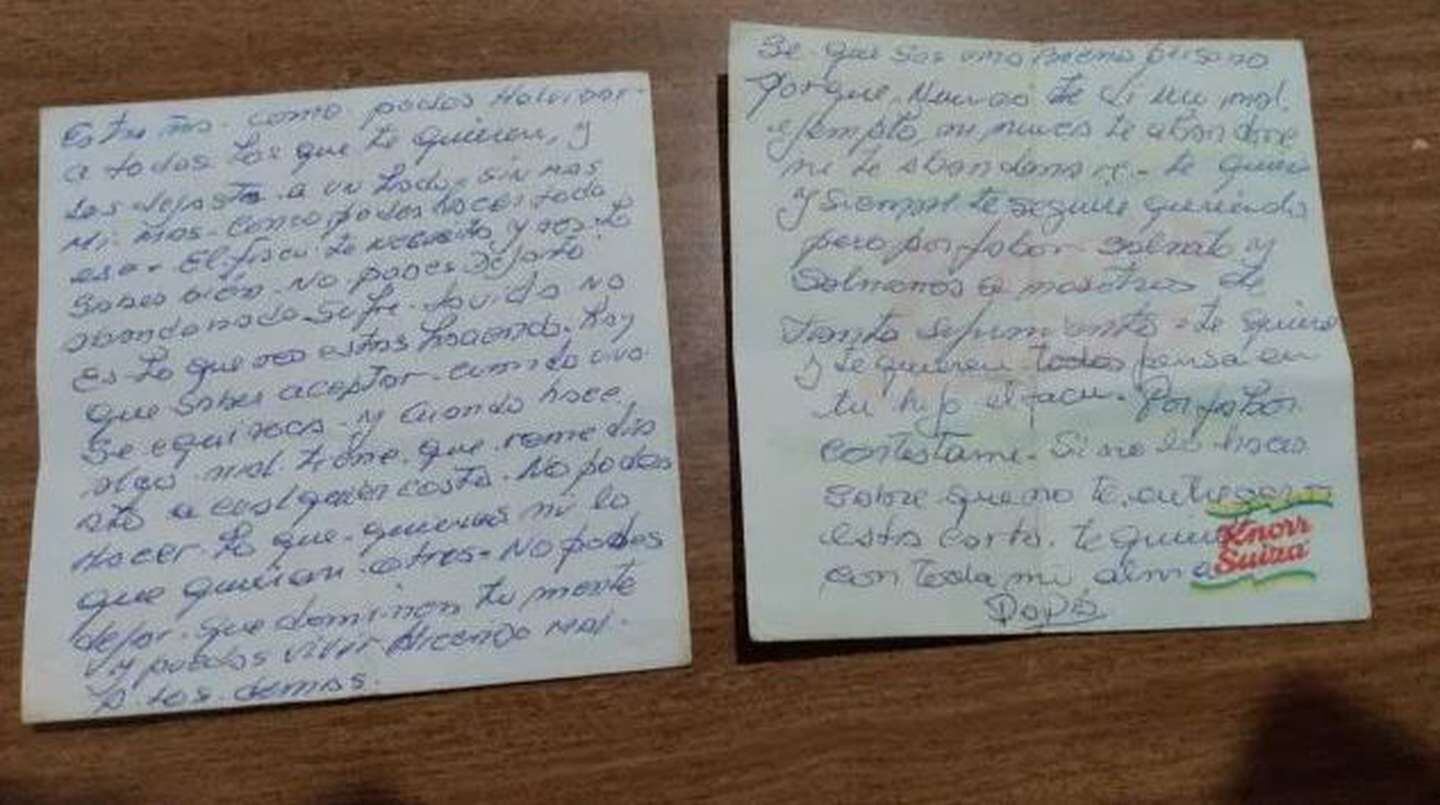 Estro ño. como podes
a todos Los que te quieren, y
Los dejaste a un Lado. sin mas
Ni mas. Como podes hacer todo
eso. El facu te necesita y vos Lo
Sabes bién. No podes Dejarlo
abandonado. Sufre. tu vida No
Es Lo que vos estas haciendo. Hay
que Saber aceptar. cuando uno
Se equivoca. y cuando hace
algo mal. tiene. que remediar
a cualquier costo. No podes
Hacer Lo que. quieras ni lo
que quieran otros. No podes
dejar. que dominen tu mente
y puedas vivir Haciendo Mal.
A Los. demas.
Se que sos una buena persona
Porque. Nunca te di un mal.
ejemplo, ni nunca te abandone
ni te abandonare. te quiero
y siempre te seguire queriendo
pero por fabor salvate y
Salvanos a nosotros de
tanto sufrimiento. te quiero
y te quieren todos pensa en
tu hijo el facu. Por fabor
contestame. Si no lo haces
sobre que no te entregaron
esta carta. te quiero
con toda mi alma
Papá
Knorr
Suiza